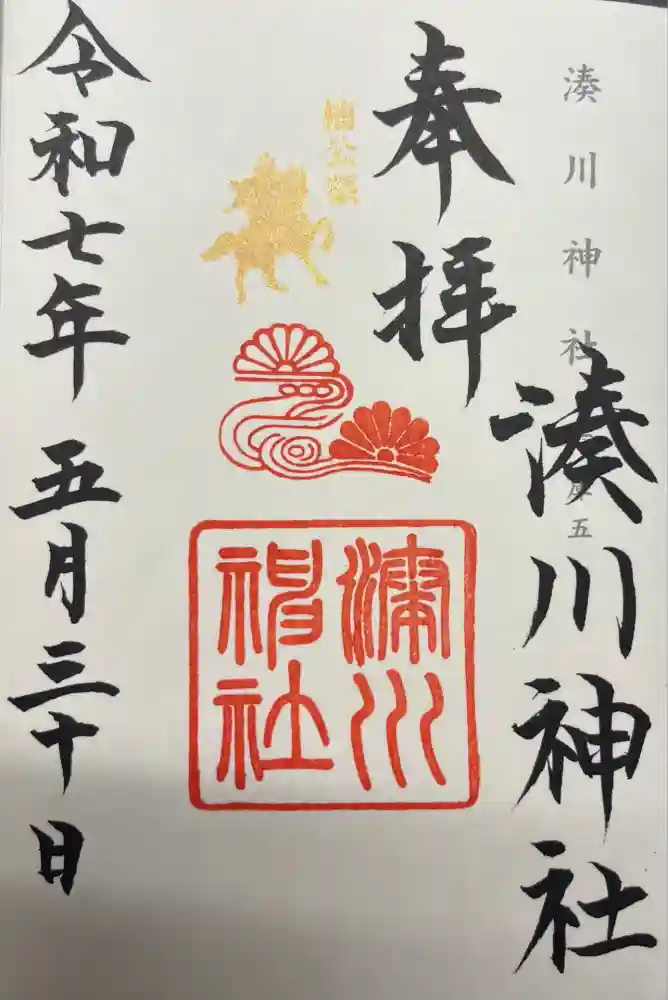 湊川神社
湊川神社
奉拝
楠公祭
湊川神社
令和七年 五月三十日